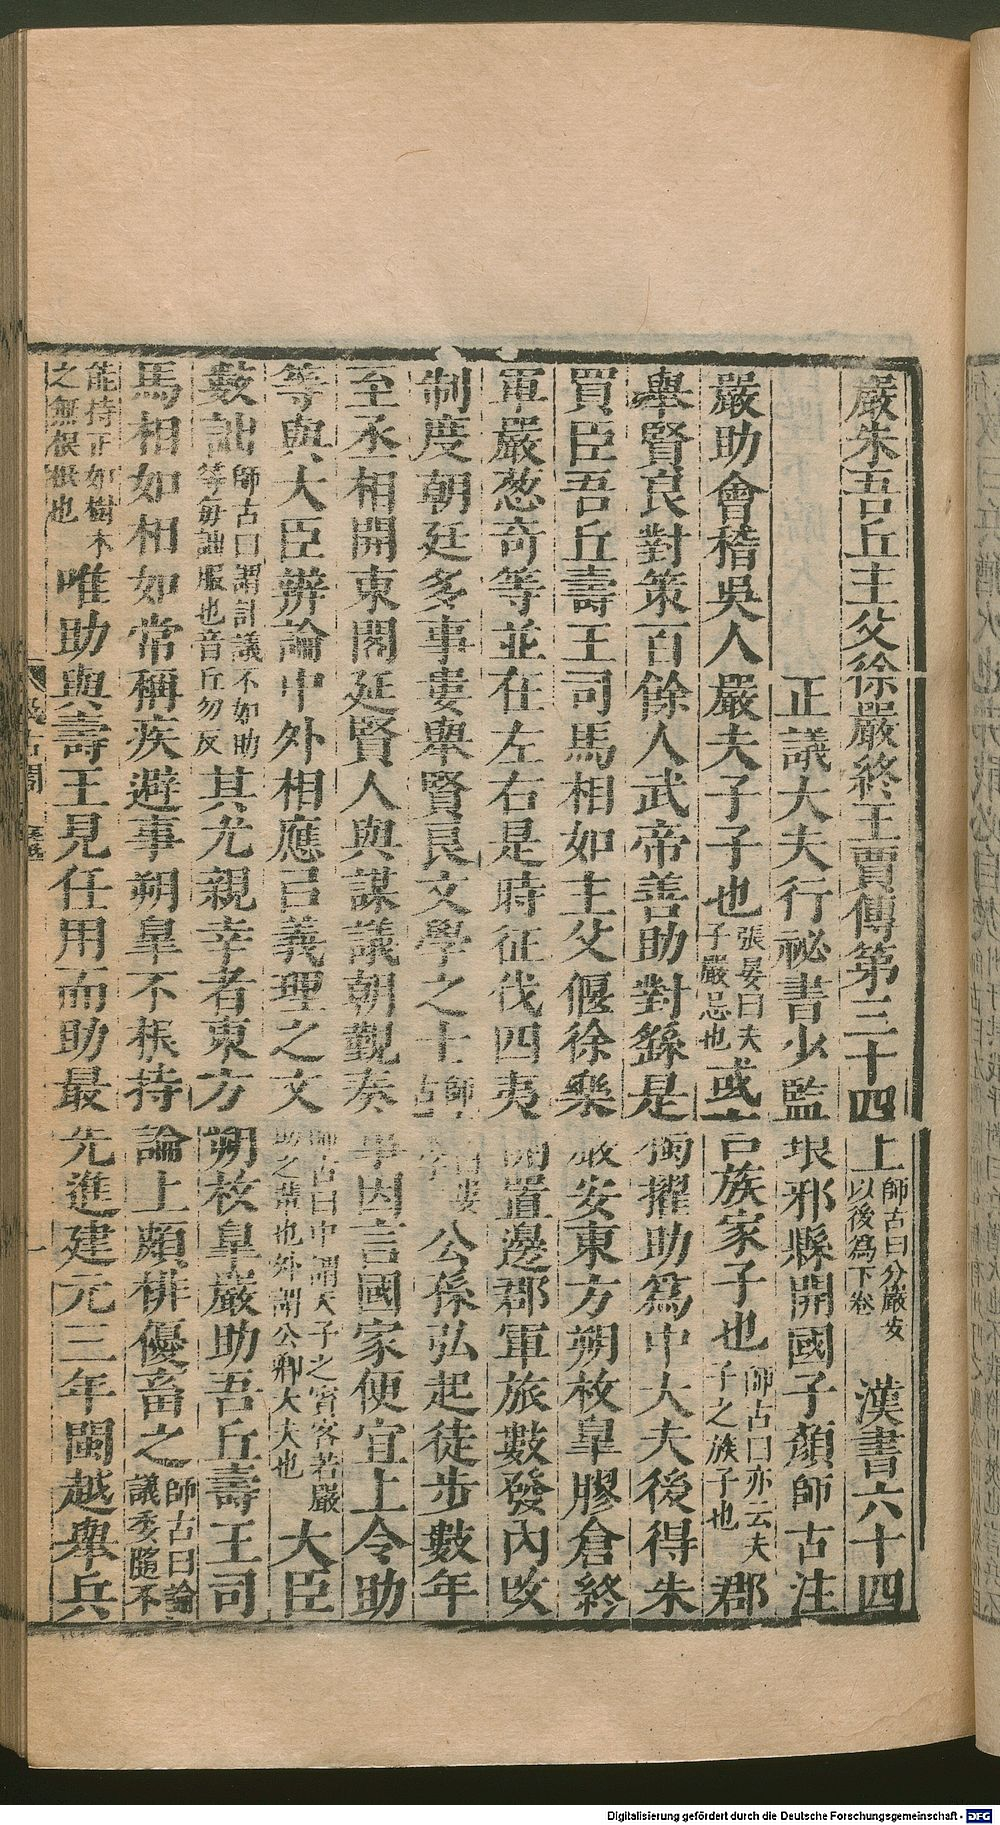 嚴朱吾丘主父徐嚴終王賈傳第三十四上師古曰分嚴安以後爲下卷 漢書六十四
正議大夫行祕書少監琅邪縣開國子顏師古注
嚴助會稽吳人嚴夫子子也張晏曰夫子嚴忌也或言族家子也師古曰亦云夫子之族子也郡
舉賢良對策百餘人武帝善助對繇是獨擢助爲中大夫後得朱
買臣吾丘壽王司馬相如主父偃徐樂嚴安東方朔枚皐膠倉終
軍嚴葱奇等並在左右是時征伐四夷開置邊郡軍旅數發內攺
制度朝廷多事婁舉賢良文學之士師古曰婁公孫弘起徒步數年
至丞相開東閣延賢人與謀議朝覲奏事因言國家便宜上令助
等與大臣辨論中外相應㠯義理之文師古曰中謂天子之賓客若嚴助之輩也外謂公卿大夫也大臣
數詘師古曰謂計議不如助等每詘服也音丘勿反其尤親幸者東方朔枚皐嚴助吾丘壽王司
馬相如相如常稱疾避事朔皐不根持論上頗俳優畜之師古曰論議委隨不
能持正如樹木之無根柢也唯助與壽王見任用而助最先進建元三年閩越舉兵
一
Digitalisierung gefördert durch die Deutsche Forschungsgemeinschaft - DFG